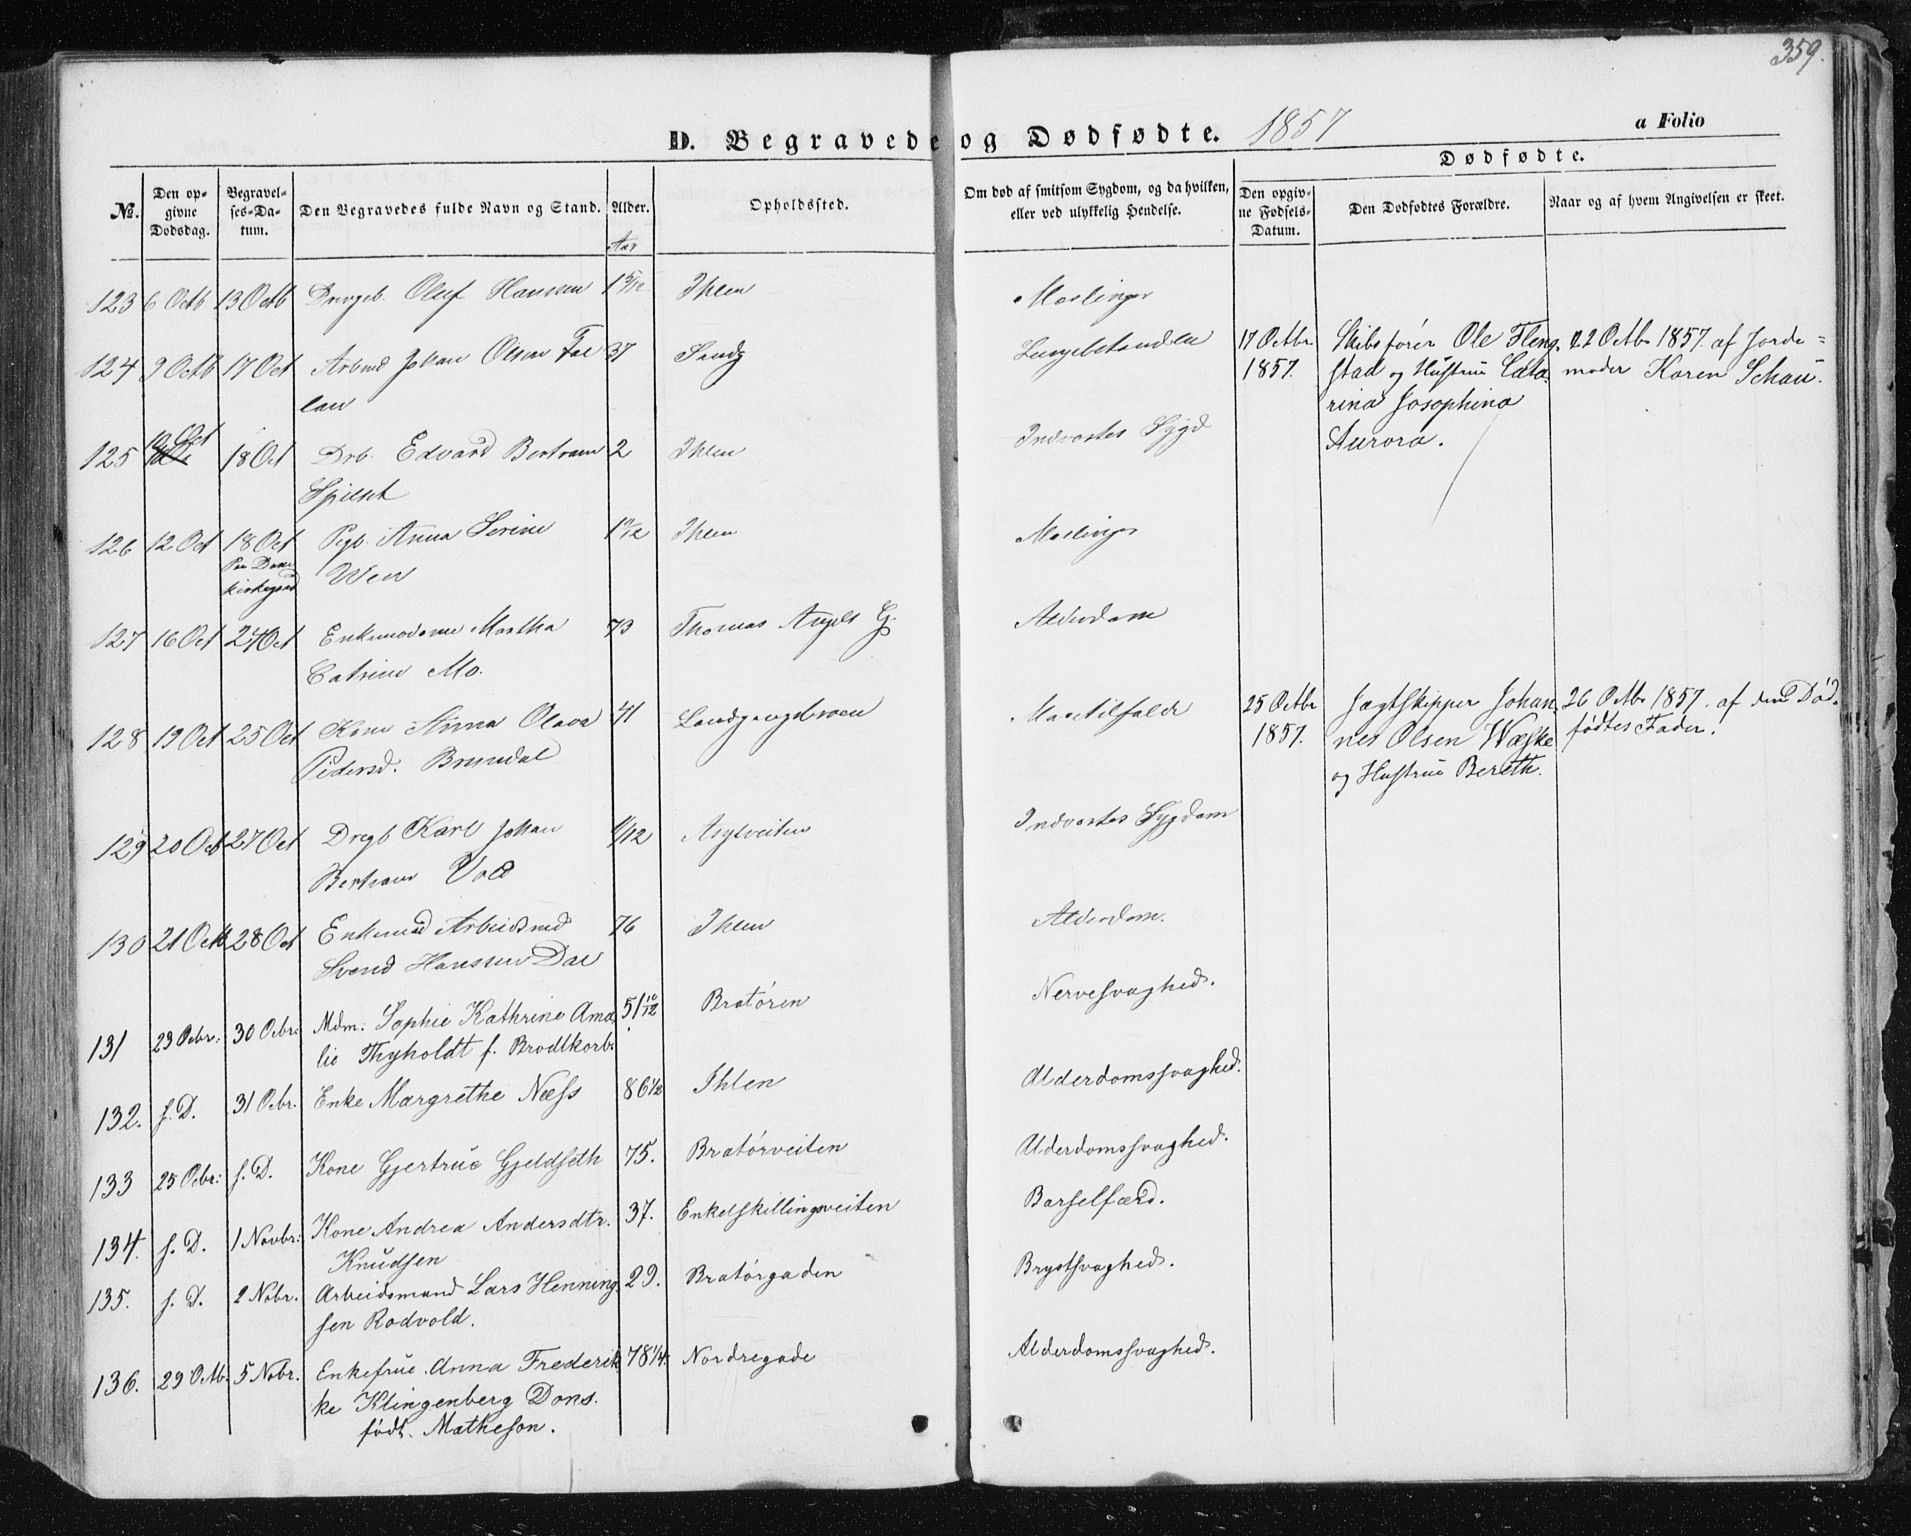 359.
D. Begravede og Dødfødte. 1857
a Folio
Dødfødte.
No. Den opgivne Dødsdag. Begravelses-Datum. Den Begravedes fulde Navn og Stand. Alder. Opholdssted. Om død af smitsom Sygdom, og da hvilken, eller ved ulykkelig Hendelse. Den opgivne Fødsels-Datum. Den Dødfødtes Forældre. Naar og af hvem Angivelsen er skeet.
Aar
123 6 Octb 13 Octb Drengeb. Oluf Hansen 1 5/12 Ihlen Maslinger
124 9 Octb 17 Oct Arbmd Johan Olsen Fae 37 Sandg
lau
17 Octbr Skibsfører Ole Fleng 22 Octbr 1857. af Jorde=
1857. stad og Hustrue Cata- moder Karen Schau.
rina Josephina
Aurora.
125 10 Oct 18 Oct Drb. Edvard Bertram 2 Ihlen Indvortes Sygd
Spilset
126 12 Oct 18 Oct Pigb. Anna Serine Ihlen Maslinger
Paa Dom
kirkegaard Wen
127 16 Oct 24 Oct Martha 73 Thomas Angels G. Alderdom
Catrine Mo.
128 19 Oct 25 Oct Kone Anna Olava 41
Pedersd.
25 Octbr Jagtskipper Johan 26 Octbr 1857. af den Død-
1857. nes Olsen Wæske fødtes Fader.
og Hustrue Bereth.
129 20 Oct 27 Oct Drgb Karl Johan Asylveiten Indvortes Sygdom
Bertram Vold
130 21 Octb 28 Oct Enkemand Arbeidsmd 76 Ihlen Alderdom.
Svend Hanssen Dae
131 23 Ocbr. 30 Ocbr: Mdm: Sophie Kathrine Ama 51 10/12 Bratøren Nervesvaghed.
lie Thyholdt f. Brodtkorb.
132. s. D. 31 Ocbr. Enke Margrethe Næss 86 1/2 Ihlen Alderdomssvaghed.
133 25 Ocbr: s. D. Kone Gjertrue Gjeldseth 75. Bratørveiten Alderdomssvaghed.
134. s. D. 1 Novbr: Kone Andrea Andersdtr. 37. Enkelskillingsveiten Barselfærd.
Knudsen
135. s. D. 2 Nobr. Arbeidsmand Lars Henning 29. Bratørgaden Brystsvaghed.
sen Rodvold.
136. 29 Octb. 5 Nobr. Enkefrue Anna Frederik 78 1/4. Nordregade Alderdomssvaghed.
ke Klingenberg Dons.
født. Matheson.